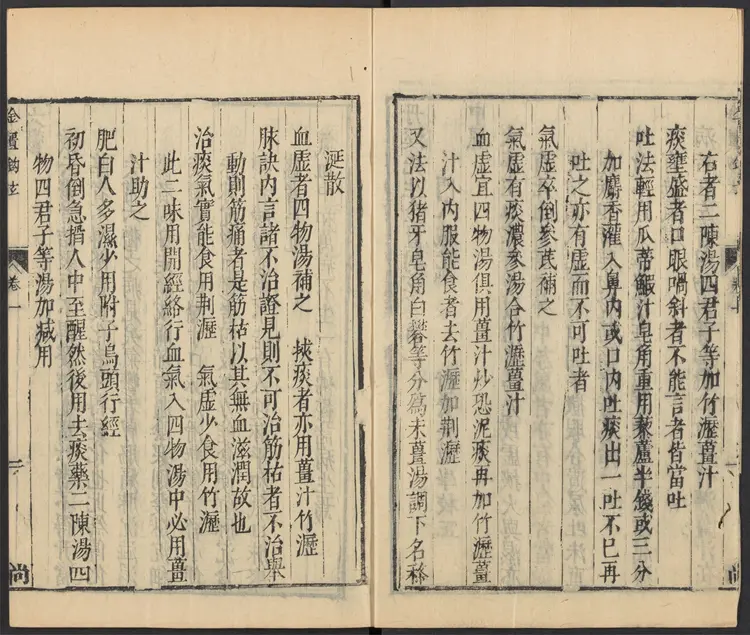 右者二陳湯四君子等加竹瀝薑汁
痰壅盛者口眼喎斜者不能言者皆當吐
吐法輕用瓜蒂鰕汁皂角重用藜蘆半錢或三分
加麝香灌入鼻內或口內吐痰出一吐不已再
吐之亦有虛而不可吐者
氣虛卒倒參芪補之
氣虛有痰濃參湯合竹瀝薑汁
血虛宜四物湯俱用薑汁炒恐泥痰再加竹瀝薑
汁入內服能食者去竹瀝加荆瀝
又法以猪牙皂角白礬等分爲末薑湯調下名稀
涎散
血虛者四物湯補之 挾痰者亦用薑汁竹瀝
脉訣內言諸不治證見則不可治筋枯者不治舉
動則筋痛者是筋枯以其無血滋潤故也
治痰氣實能食用荆瀝 氣虛少食用竹瀝
此二味用開經絡行血氣入四物湯中必用薑
汁助之
肥白人多濕少用附子烏頭行經
初昏倒急掐人中至醒然後用去痰藥二陳湯四
物四君子等湯加減用
金匱鈎玄
卷一
二
尚